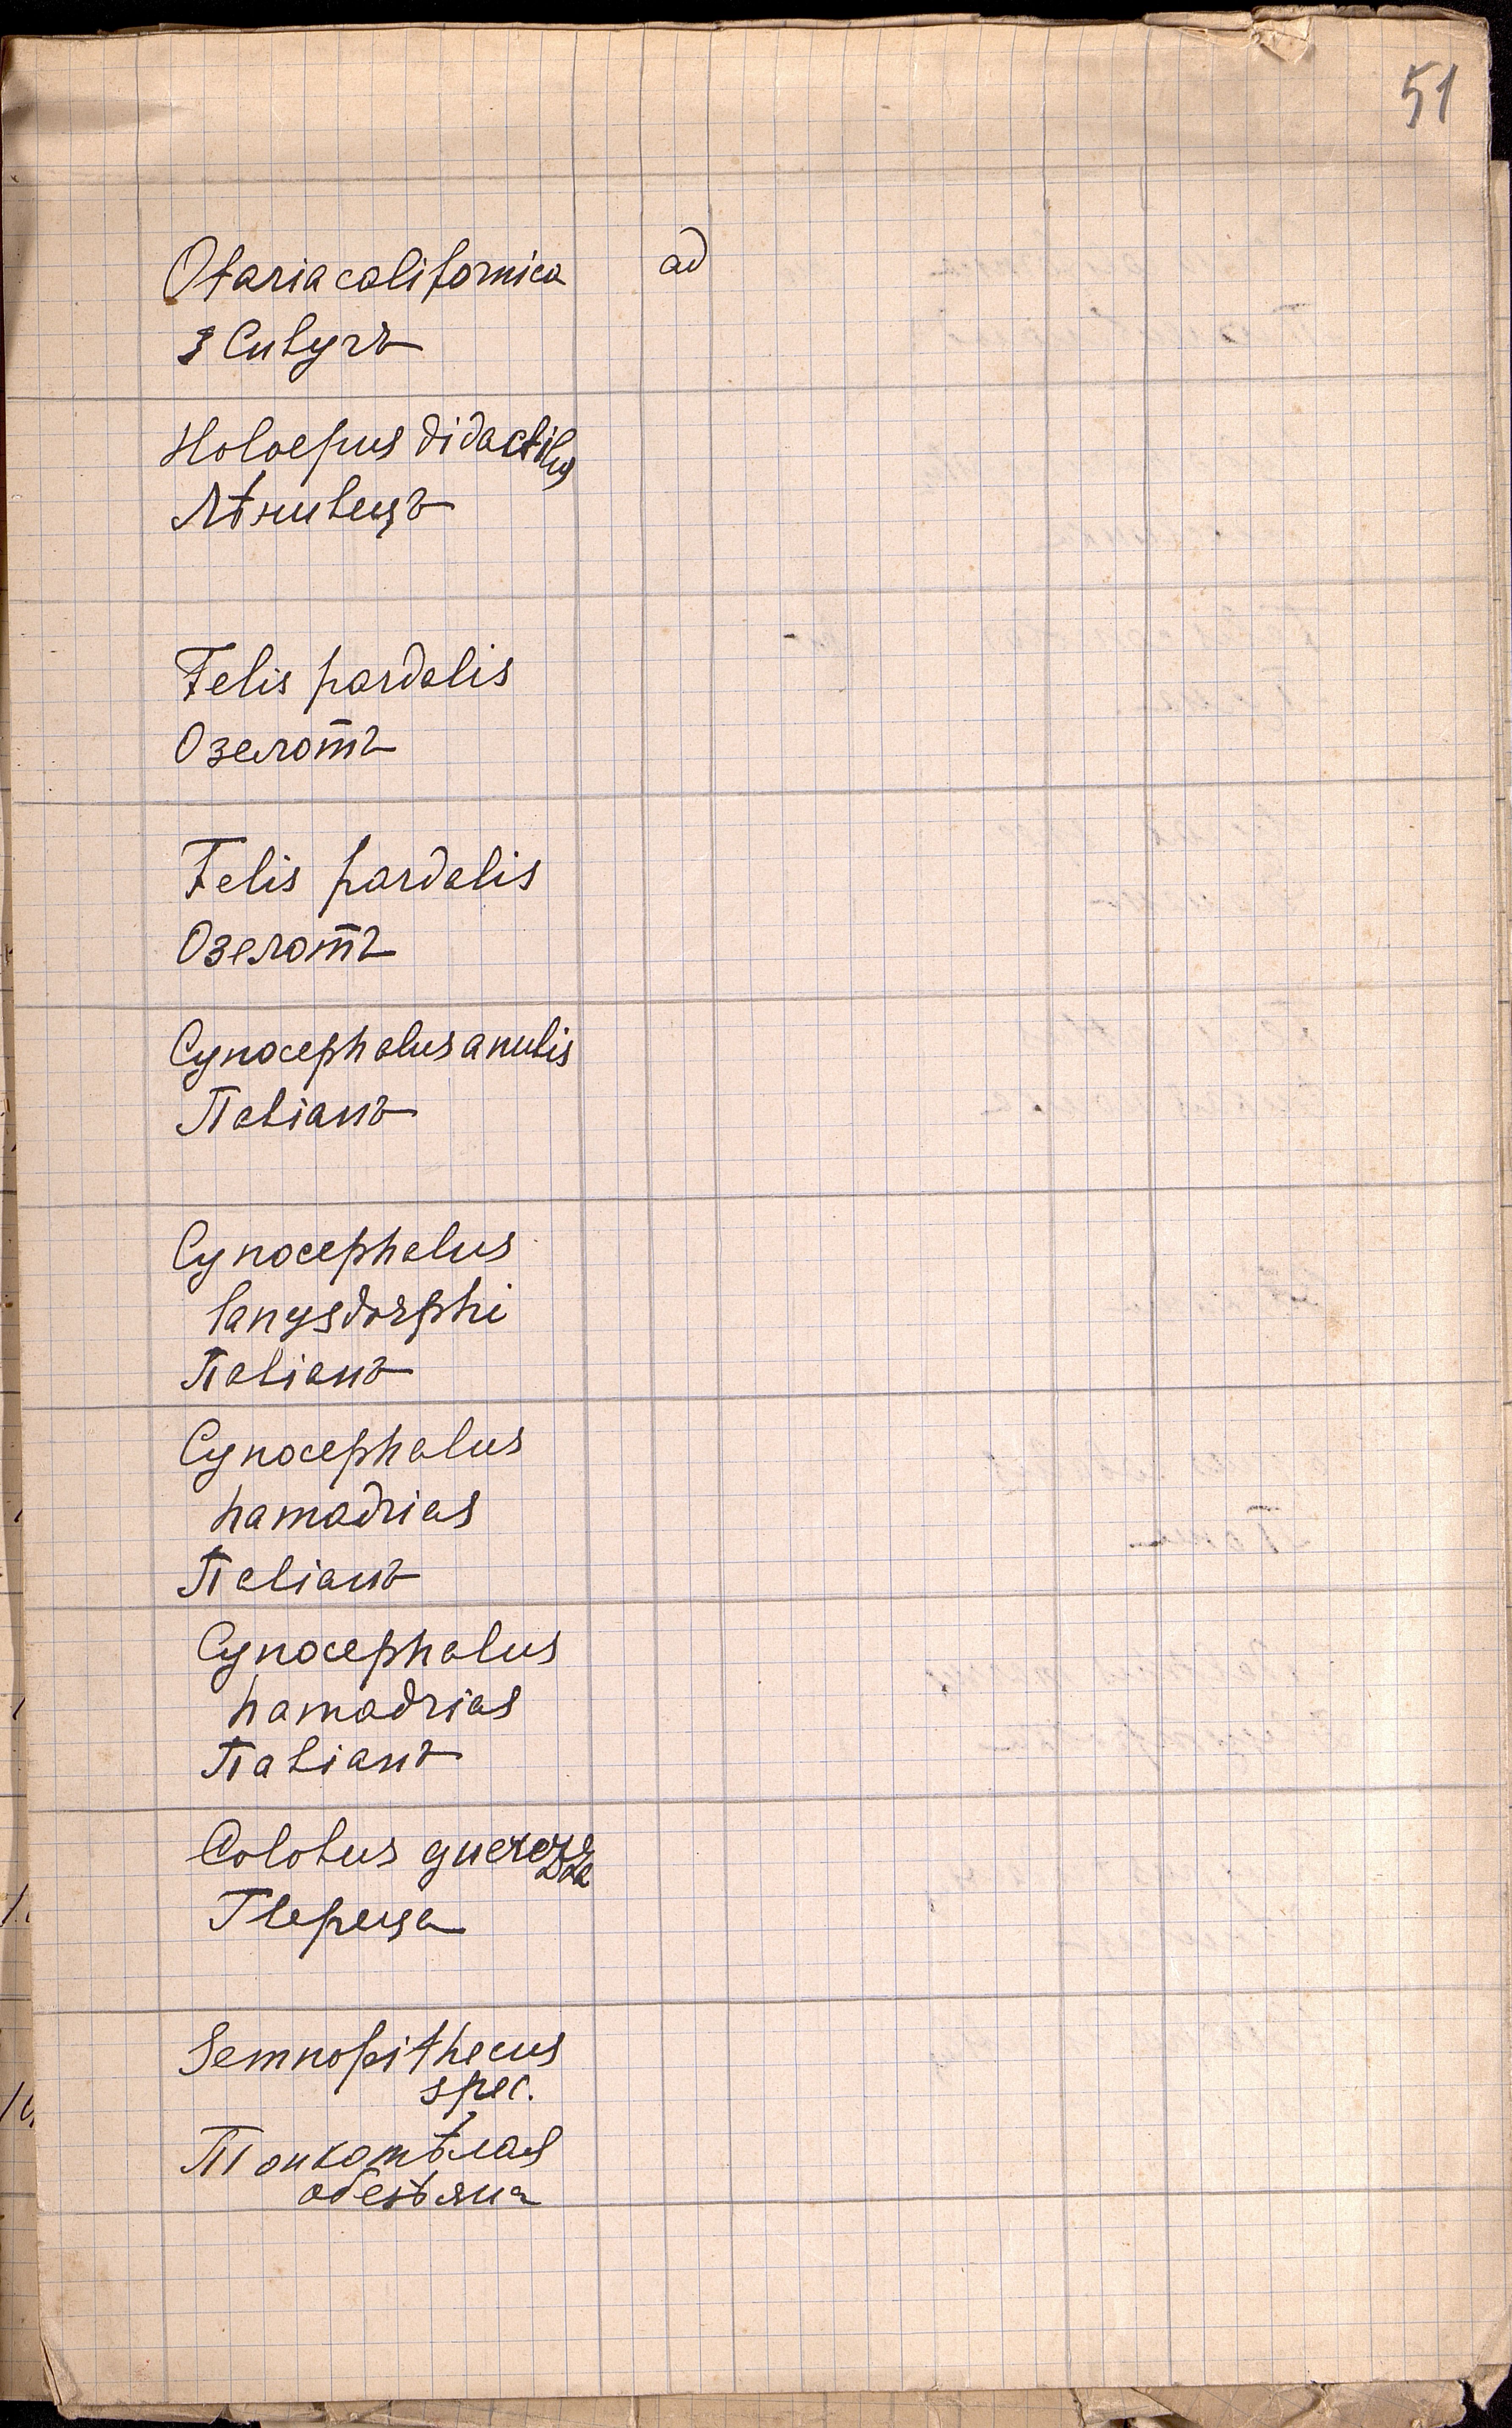 51
Otaria californica ad
Сивучъ
Holoepus didactilus
Лѣнивецъ
Felis pardalis
Озелотъ
Felis pardalis
Озелотъ
Cynocephalus anubis
Павіанъ
Cynocephalus
langsdorphi
Павіанъ
Cynocephalus
hamadrias
Павіанъ
Cynocephalus
hamadrias
Павіанъ
Colobus
Гвереца
Semnopithecus
spec.
Тонкотѣлая
обезьяна